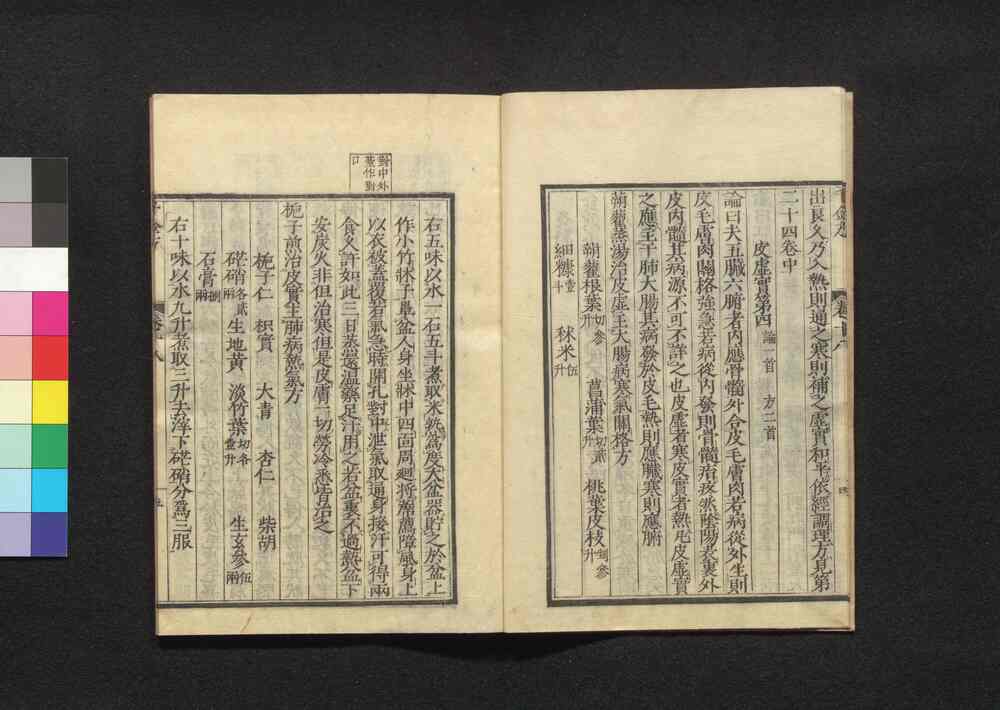 出良久乃入熱則通之寒則補之虛實和平依經調理方見第
二十四卷中
皮虛實第四 論一首 方二首
論曰夫五臟六腑者內應骨髓外合皮毛膚肉若病從外生則
皮毛膚肉關格強急若病從內發則骨髓痟疼然陰陽表裏外
皮內髓其病源不可不詳之也皮虛者寒皮實者熱凡皮虛實
之應主于肺大腸其病發於皮毛熱則應臟寒則應腑
蒴藋蒸湯治皮虛主大腸病寒氣關格方
蒴藋根葉切參升 菖蒲葉切貳升 桃葉皮枝剉參升
細糠壹斗 秫米伍升
對中外
臺作對
口
右五味以水一石五斗煮取米熟爲度大盆器貯之於盆上
作小竹牀子罩盆人身坐牀中四面周迴將薦障風身上
以衣被蓋覆若氣急時開孔對中泄氣取通身接汗可得兩
食久許如此三日蒸還溫藥足汁用之若盆裏不過熱盆下
安炭火非但治寒但是皮膚一切勞冷悉皆治之
梔子煎治皮實主肺病熱氣方
梔子仁 枳實 大青 杏仁 柴胡
硭硝各貳兩 生地黃 淡竹葉切各壹升 生玄參伍兩
石膏捌兩
右十味以水九升煮取三升去滓下硭硝分爲三服